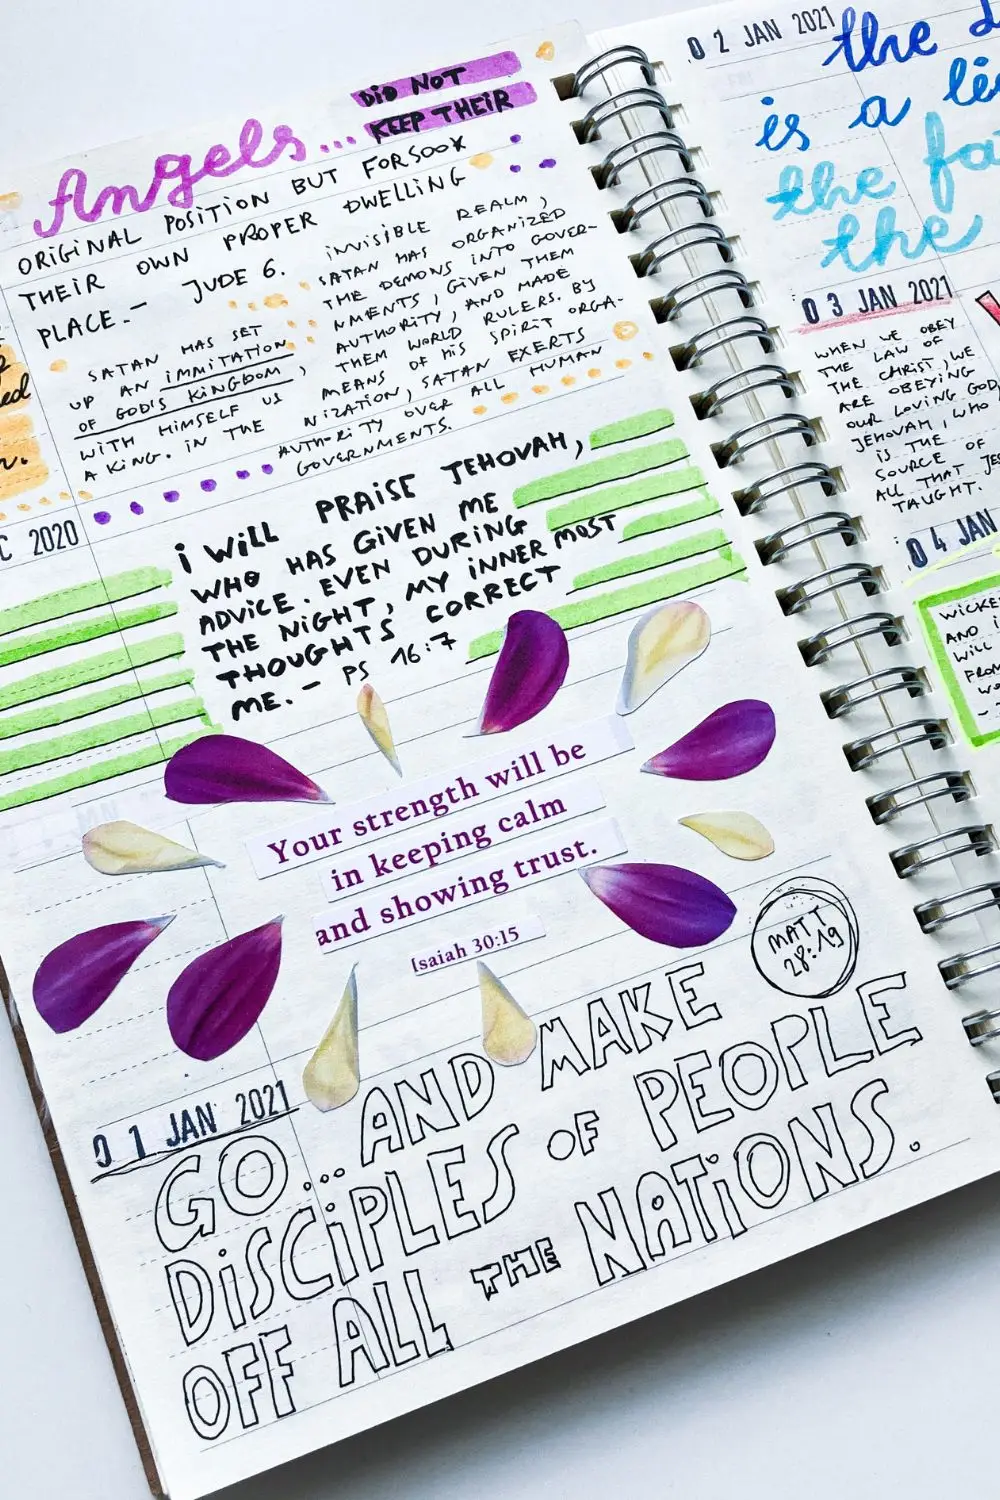 DID NOT
Angels... KEEP THEIR
ORIGINAL POSITION BUT FORSOOK
THEIR OWN PROPER DWELLING
PLACE. – JUDE 6.
SATAN HAS SET
UP AN IMMITATION
OF GOD'S KINGDOM,
WITH HIMSELF US
A KING. IN THE
INVISIBLE REALM,
SATAN HAS ORGANIZED
THE DEMONS INTO GOVER-
NMENTS, GIVEN THEM
AUTHORITY, AND MADE
THEM WORLD RULERS. BY
MEANS OF HIS SPIRIT ORGA-
NIZATION, SATAN EXERTS
AUTHORITY OVER ALL HUMAN
GOVERNMENTS.
C 2020
I WILL PRAISE JEHOVAH,
WHO HAS GIVEN ME
ADVICE. EVEN DURING
THE NIGHT, MY INNER MOST
THOUGHTS CORRECT
ME. – PS 16:7
Your strength will be
in keeping calm
and showing trust.
Isaiah 30:15
0 1 JAN 2021
MATT
28:19
GO... AND MAKE
DISCIPLES OF PEOPLE
OFF ALL THE NATIONS.
0 2 JAN 2021
the
is a
the
the
0 3 JAN 2021
WHEN WE OBEY
THE LAW OF
THE CHRIST, WE
ARE OBEYING
OUR LOVING GOD,
JEHOVAH, WHO
IS THE
SOURCE OF
ALL THAT JES
TAUGHT.
0 4 JAN
WICKE
AND I
WILL
FROM